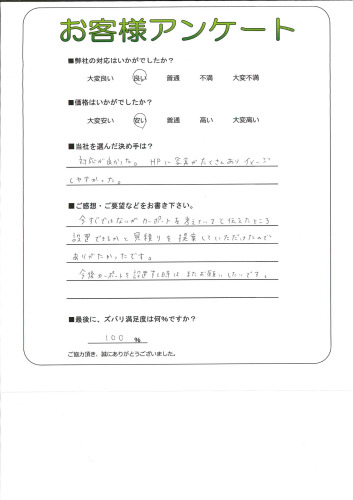 お客様アンケート
■弊社の対応はいかがでしたか？
大変良い 良い 普通 不満 大変不満
■価格はいかがでしたか？
大変安い 安い 普通 高い 大変高い
■当社を選んだ決め手は？
対応が良かった。HPに写真がたくさんありイメージ
しやすかった。
■ご感想・ご要望などをお書き下さい。
今すぐではないがカーポートを考えていて伝えたところ
設置できるかと見積りを提案していただけたので
ありがたかったです。
今後カーポートを設置する時は またお願いしたいです。
■最後に、ズバリ満足度は何％ですか？
100 %
ご協力頂き、誠にありがとうございました。